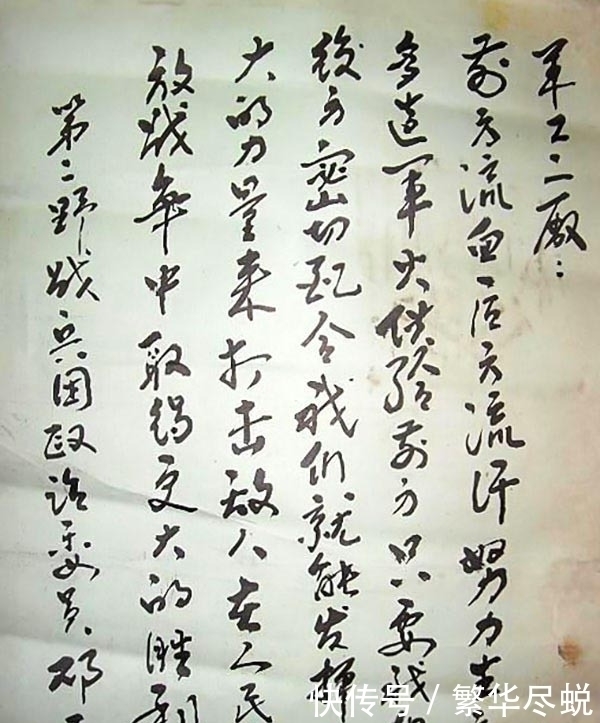 军工二厂：
前方流血后方流汗努力
多造军火供给前方只要我们
后方密切配合我们就能发挥
大的力量来打击敌人在人民
放战争中取得更大的胜利
第二野战兵团政治委员邓
快传号／繁华尽蜕